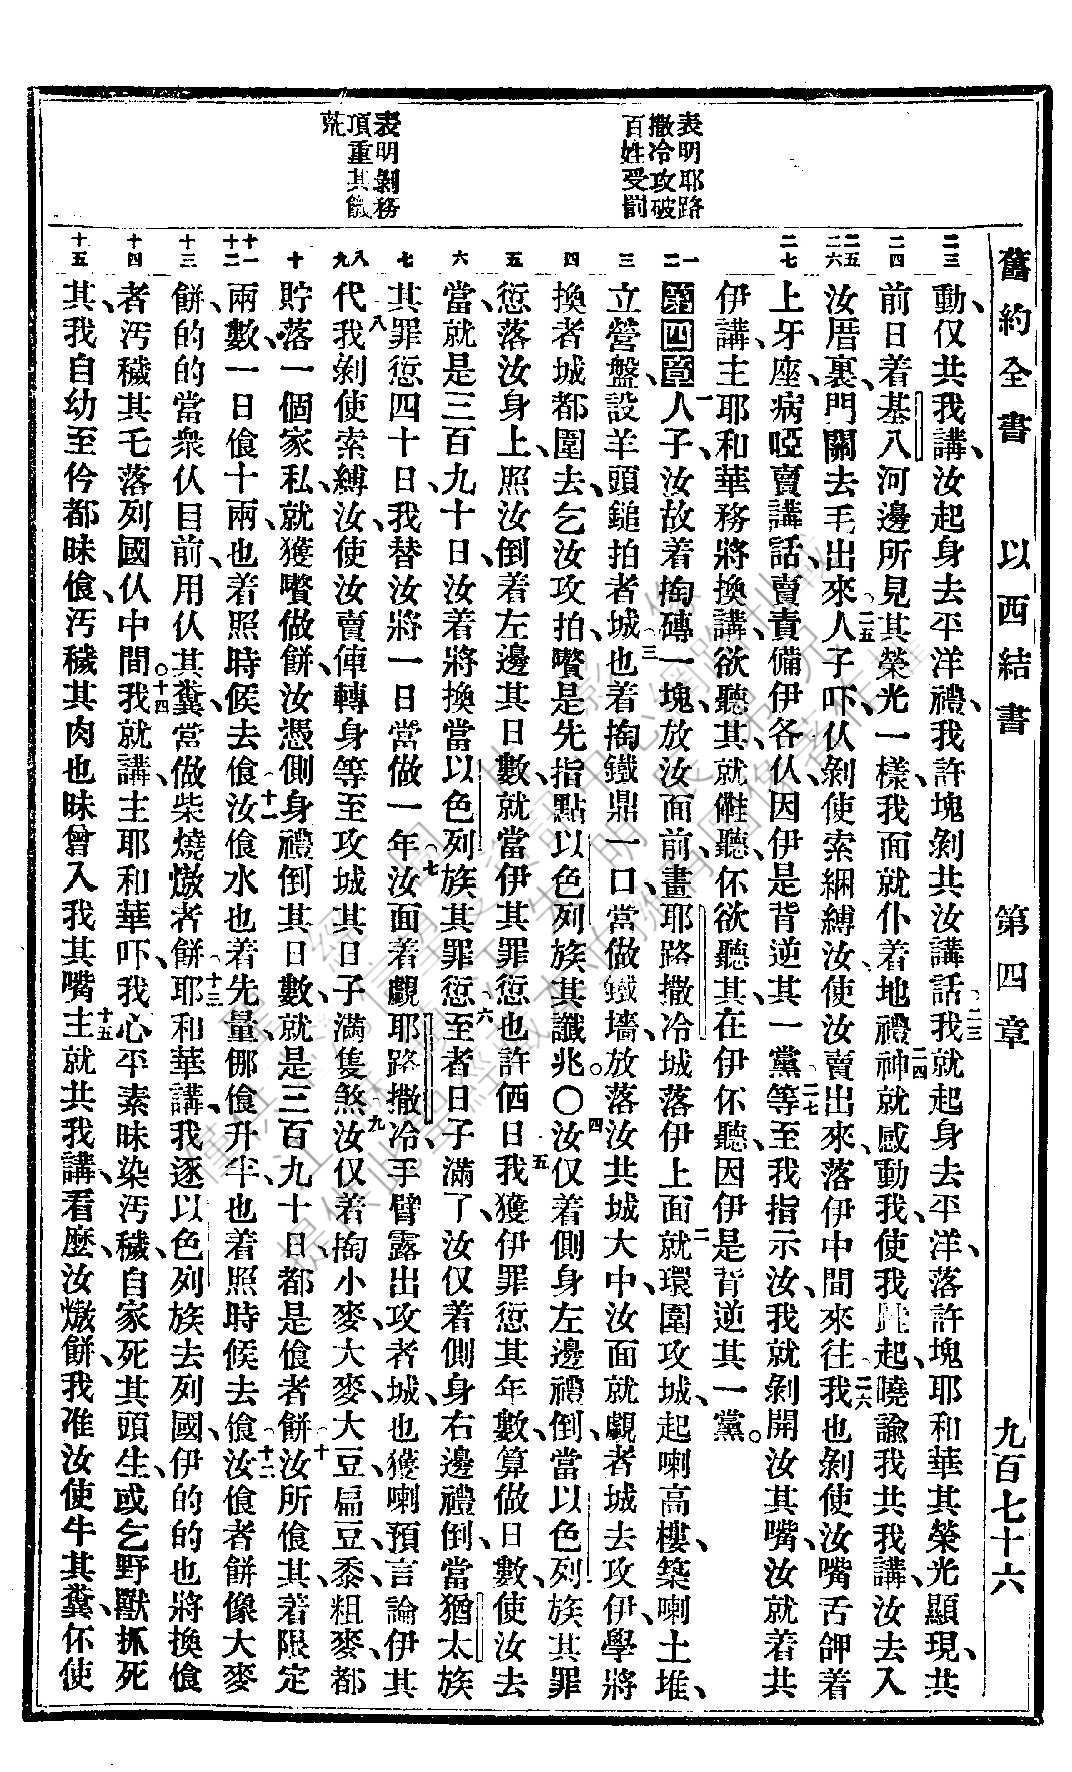 舊約全書 以西結書 第四章 九百七十六
表明耶路
撒冷攻破
百姓受罰
表明剝務
頂重其饑
荒
二三
動、仅共我講、汝起身去平洋禮、我許塊剝共汝講話、二三我就起身去平洋、落許塊耶和華其榮光顯現、共
二四
前日着基八河邊所見其榮光一樣、我面就仆着地禮、二四神就感動我、使我跳起、曉諭我、共我講、汝去入
二五
二六
汝厝裏、門關去毛出來、二五人子吓、仈剝使索綑縛汝、使汝賣出來落伊中間來往、二六我也剝使汝嘴舌舺着
二七
上牙座、病啞賣講話、賣責備伊各仈、因伊是背逆其一黨、二七等至我指示汝、我就剝開汝其嘴、汝就着共
伊講、主耶和華務將換講、欲聽其就儺聽、伓欲聽其在伊伓聽、因伊是背逆其一黨。
一
二
第四章 一人子、汝故着掏磚一塊放汝面前、畫耶路撒冷城落伊上面、二就環圍攻城、起喇高樓、築喇土堆、
三
立營盤、設羊頭鎚拍者城、三也着掏鐵鼎一口、當做鐵墻、放落汝共城大中、汝面就覷者城去攻伊、學將
四
換者城都圍去、乞汝攻拍、嚽是先指點以色列族其讖兆。〇四汝仅着側身左邊禮倒、當以色列族其罪
五
愆落汝身上、照汝倒着左邊其日數、就當伊其罪愆、五也許俩日我獲伊罪愆其年數算做日數、使汝去
六
當、就是三百九十日、汝着將換當以色列族其罪愆、六至者日子滿了、汝仅着側身右邊禮倒、當猶太族
七
其罪愆四十日、我替汝將一日當做一年、七汝面着覷耶路撒冷、手臂露出攻者城、也獲喇預言論伊其
八
九
代、八我剝使索縛汝、使汝賣俥轉身、等至攻城其日子滿隻煞、九汝仅着掏小麥、大麥、大豆、扁豆、黍、粗麥、都
十
貯落一個家私、就獲嚽做餅、汝憑側身禮倒其日數、就是三百九十日、都是飧者餅、十汝所飧其、著限定
十一
十二
兩數、一日飧十兩、也着照時候去飧、十一汝飧水也着先量、僫飧升半、也着照時候去飧、十二汝飧者餅像大麥
十三
餅的的當衆仈目前用仈其糞當做柴燒燉者餅、十三耶和華講、我逐以色列族去列國、伊的的也將換飧
十四
者汚穢其乇落列國仈中間。十四我就講、主耶和華吓、我心平素昧染汚穢、自家死其頭生、或乞野獸抓死
十五
其、我自幼至伶都昧飧、汚穢其肉也昧曾入我其嘴、十五主就共我講、看麽、汝燉餅、我准汝使牛其糞、伓使